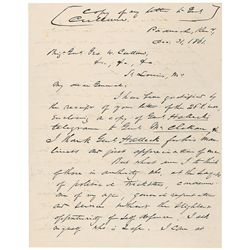 Copy of my letter to Genl
Cullum.
Paducah, Ky
Dec. 31, 1861
Brig. Genl. Geo. W. Cullum,
&c., &c., &c.
St Louis, Mo
My dear General,
I have been gratified by the
receipt of your letter of the 25th inst.
enclosing a copy of Genl Halleck's
telegram to Genl McClellan &
I thank Genl Halleck for his
and just appreciation of me.
But what am I to think of
those in authority who, at the
of political tricksters,
of my age, general reputation
and service without the slightest
opportunity of self defence. I ask
myself who is safe. I am at